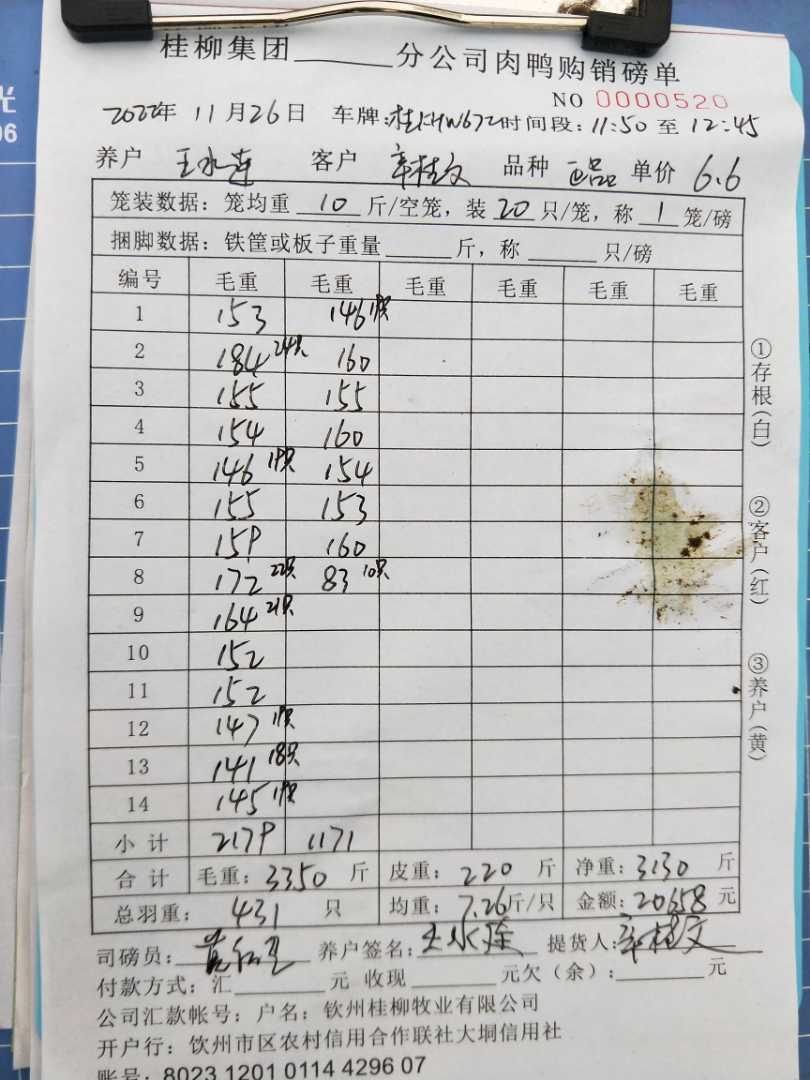 光
06
桂柳集团______分公司肉鸭购销磅单
NO 0000520
2022年 11月26日 车牌:桂KHW672时间段:11:50至12:45
养户 王水莲 客户 辛桂文 品种 正品 单价 6.6
笼装数据:笼均重 10 斤/空笼,装 20 只/笼,称 1 笼/磅
捆脚数据:铁筐或板子重量_____斤,称_____只/磅
编号 毛重 毛重 毛重 毛重 毛重 毛重
1 153 146 19只
2 184 24只 160
3 155 155
4 154 160
5 146 19只 154
6 155 153
7 159 160
8 172 22只 83 10只
9 164 21只
10 152
11 152
12 147 19只
13 141 18只
14 145 19只
小计 2179 1171
合计 毛重:3350 斤 皮重:220 斤 净重:3130 斤
总羽重: 431 只 均重:7.26斤/只 金额:20658 元
司磅员: 养户签名:王水莲 提货人:辛桂文
付款方式:汇______元 收现______元欠(余):______元
公司汇款帐号:户名:钦州桂柳牧业有限公司
开户行:钦州市区农村信用合作联社大垌信用社
账号:8023 1201 0114 4296 07
①存根(白)
②客户(红)
③养户(黄)